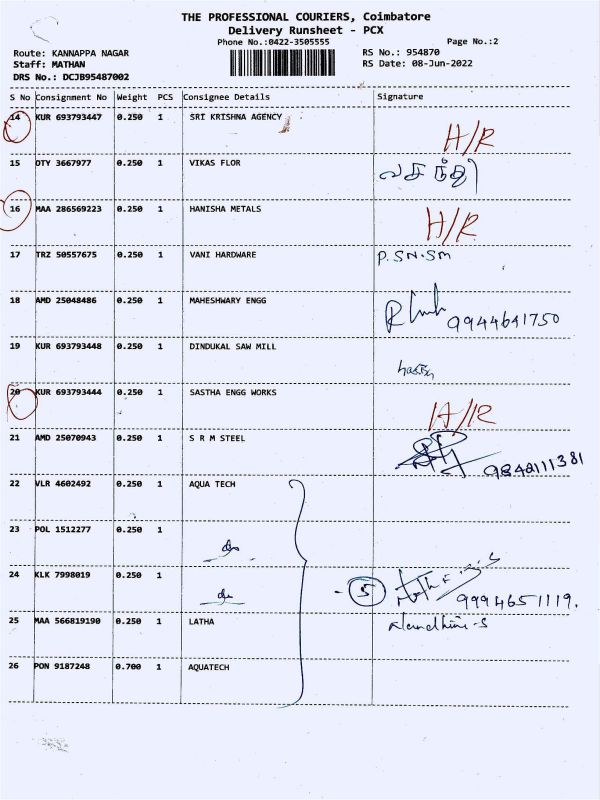 THE PROFESSIONAL COURIERS, Coimbatore
Delivery Runsheet - PCX
Phone No.:0422-3505555 Page No.:2
Route: KANNAPPA NAGAR RS No.: 954870
Staff: MATHAN RS Date: 08-Jun-2022
DRS No.: DCJB95487002
S No Consignment No Weight PCS Consignee Details Signature
14 KUR 693793447 0.250 1 SRI KRISHNA AGENCY
H/R
15 OTY 3667977 0.250 1 VIKAS FLOR
வசந்தி
16 MAA 286569223 0.250 1 HANISHA METALS H/R
17 TRZ 50557675 0.250 1 VANI HARDWARE P.SN.SM
18 AMD 25048486 0.250 1 MAHESHWARY ENGG
9944641750
19 KUR 693793448 0.250 1 DINDUKAL SAW MILL
20 KUR 693793444 0.250 1 SASTHA ENGG WORKS
21 AMD 25070943 0.250 1 S R M STEEL
9842111381
22 VLR 4602492 0.250 1 AQUA TECH
23 POL 1512277 0.250 1
24 KLK 7998019 0.250 1
- 5 9994651119.
25 MAA 566819190 0.250 1 LATHA
26 PON 9187248 0.700 1 AQUATECH